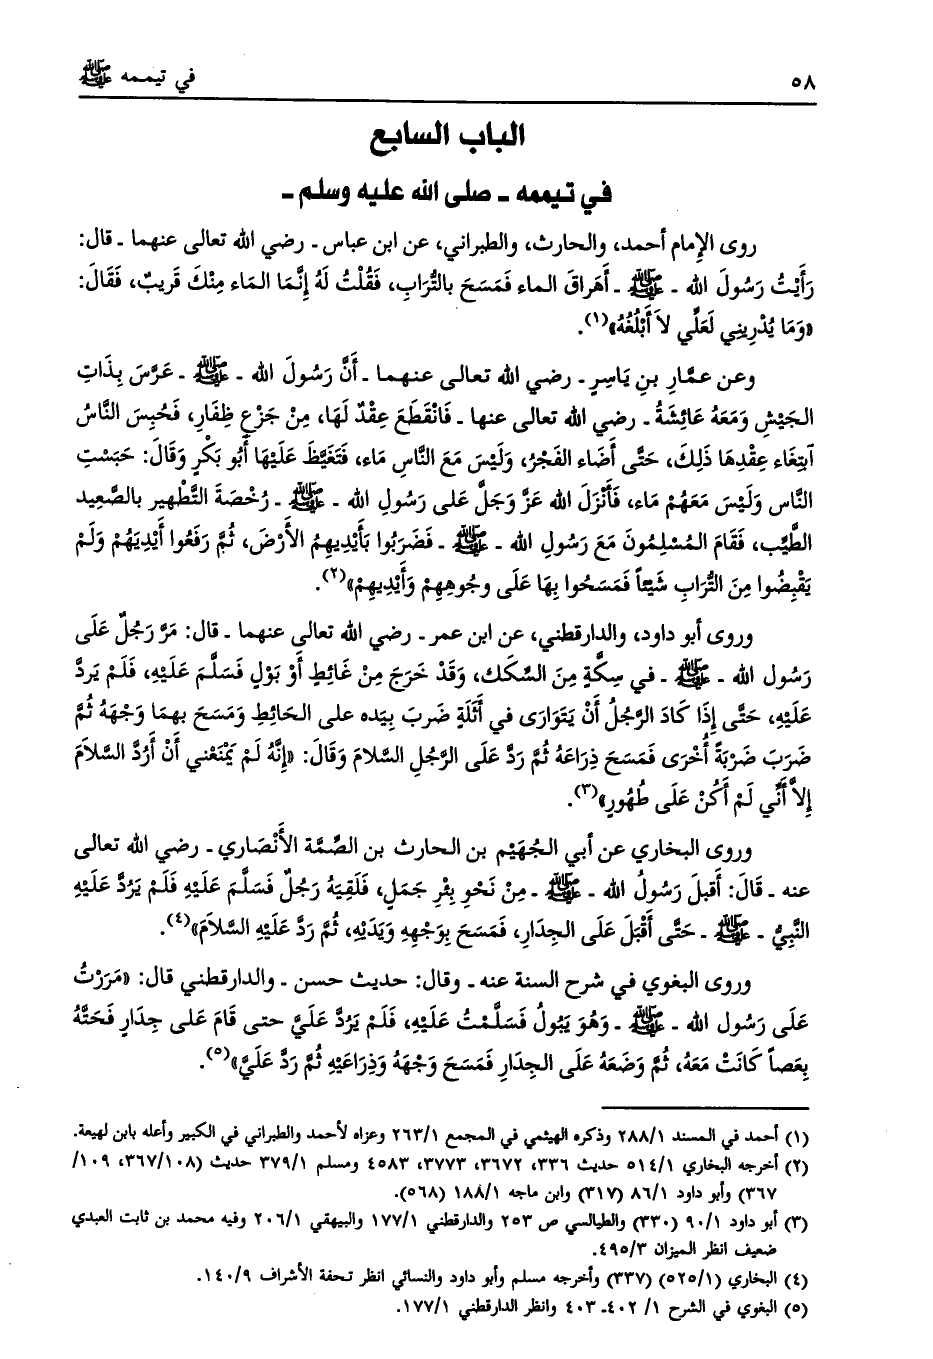 ٥٨ في تيممه ﷺ
الباب السابع
في تيممه ـ صلى الله عليه وسلم ـ
روى الإمام أحمد، والحارث، والطبراني، عن ابن عباس ـ رضي الله تعالى عنهما ـ قال:
رَأَيْتُ رَسُولَ الله ـ ﷺ ـ أَهَراقَ الماء فَمَسَحَ بالتُّرَابِ، فَقُلْتُ لَهُ إِنَّمَا المَاء مِنْكَ قَرِيبٌ، فَقَالَ:
«وَمَا يُدْرِيني لَعَلِّي لاَ أَبْلُغُهُ»(١).
وعن عمَّارِ بنِ يَاسِرٍ ـ رضي الله تعالى عنهما ـ أَنَّ رَسُولَ الله ـ ﷺ ـ عَرَّسَ بِذَاتِ
الجَيْشِ وَمَعَهُ عَائِشَةُ ـ رضي الله تعالى عنها ـ فَانْقَطَعَ عِقْدٌ لَهَا، مِنْ جَزْعِ ظِفَارِ، فَحُبِسَ النَّاسُ
آبتِغَاء عِقْدِهَا ذَلِكَ، حَتَّى أَضَاء الفَجْرُ، وَلَيْسَ مَعَ النَّاسِ مَاء، فَتَغَيَّظَ عَلَيْهَا أَبُو بَكْرٍ وَقَالَ: حَبَسْتِ
النَّاس وَلَيْسَ مَعَهُمْ مَاء، فَأَنْزَلَ الله عَزَّ وَجَلَّ عَلى رَسُولِ الله ـ ﷺ ـ رُخْصَةَ التَّطْهِير بالصَّعِيد
الطَّيِّب، فَقَامَ المُسْلِمُونَ مَعَ رَسُولِ الله ـ ﷺ ـ فَضَرَبُوا بَأَيْدِيهِمُ الأَرْضَ، ثُمَّ رَفَعُوا أَيْدِيَهُمْ وَلَمْ
يَقْبِضُوا مِنَ التُّرَابِ شَيْئاً فَمَسَحُوا بِهَا عَلَى وجُوهِهِمْ وَأَيْدِيهِمْ»(٢).
وروى أبو داود، والدارقطني، عن ابن عمر ـ رضي الله تعالى عنهما ـ قال: مَرَّ رَجُلٌ عَلَى
رَسُول الله ـ ﷺ ـ في سِكَّةٍ مِنَ السِّكَك، وَقَدْ خَرَجَ مِنْ غَائِطٍ أَوْ بَوْلٍ فَسَلَّمَ عَلَيْهِ، فَلَمْ يَردَّ
عَلَيْهِ، حَتَّى إِذَا كَادَ الرَّجُلُ أَنْ يَتَوَارَى في أَثْلَةٍ ضَرَبَ بِيَده على الحَائِطِ وَمَسَحَ بهما وَجْهَهُ ثُمَّ
ضَرَبَ ضَرْبَةً أُخْرَى فَمَسَحَ ذِرَاعَهُ ثُمَّ رَدَّ عَلَى الرَّجُلِ السَّلامَ وَقَالَ: «إِنَّهُ لَمْ يَمْنَعْني أَنْ أَرُدَّ السَّلاَمَ
إِلاَّ أَنِّي لَمْ أَكُنْ عَلَى طُهُورٍ»(٣).
وروى البخاري عن أبي الجُهَيْم بن الحارث بن الصِّمَّة الأَنْصَاري ـ رضي الله تعالى
عنه ـ قَالَ: أَقبلَ رَسُولُ الله ـ ﷺ ـ مِنْ نَحْوِ بِئْرِ جَمَلٍ، فَلَقِيَهُ رَجُلٌ فَسَلَّمَ عَلَيْهِ فَلَمْ يَرُدَّ عَلَيْهِ
النَّبِيُّ ـ ﷺ ـ حَتَّى أَقْبَلَ عَلَى الجِدَارِ، فَمَسَحَ بِوَجْهِهِ وَيَدَيْهِ، ثُمَّ رَدَّ عَلَيْهِ السَّلاَمَ»(٤).
وروى البغوي في شرح السنة عنه ـ وقال: حديث حسن ـ والدارقطني قال: «مَرَرْتُ
عَلَى رَسُول الله ـ ﷺ ـ وَهُوَ يَبُولُ فَسَلَمْتُ عَلَيْهِ، فَلَمْ يَرُدَّ عَلَيَّ حتى قَامَ عَلى جِدَارٍ فَحَتَّهُ
بِعَصاً كَانَتْ مَعَهُ، ثُمَّ وَضَعَهُ عَلَى الجِدَارِ فَمَسَحَ وَجْهَهُ وَذِرَاعَيْهِ ثُمَّ رَدَّ عَلَيَّ»(٥).
(١) أحمد في المسند ٢٨٨/١ وذكره الهيثمي في المجمع ٢٦٣/١ وعزاه لأحمد والطبراني في الكبير وأعله بابن لهيعة.
(٢) أخرجه البخاري ٥١٤/١ حديث ٣٣٦، ٣٦٧٢، ٣٧٧٣، ٤٥٨٣ ومسلم ٣٧٩/١ حديث (٣٦٧/١٠٨، ١٠٩/
٣٦٧) وأبو داود ٨٦/١ (٣١٧) وابن ماجه ١٨٨/١ (٥٦٨).
(٣) أبو داود ٩٠/١ (٣٣٠) والطيالسي ص ٢٥٣ والدارقطني ١٧٧/١ والبيهقي ٢٠٦/١ وفيه محمد بن ثابت العبدي
ضعيف انظر الميزان ٤٩٥/٣.
(٤) البخاري (٥٢٥/١) (٣٣٧) وأخرجه مسلم وأبو داود والنسائي انظر تحفة الأشراف ١٤٠/٩.
(٥) البغوي في الشرح ١/ ٤٠٢ـ ٤٠٣ وانظر الدارقطني ١٧٧/١.